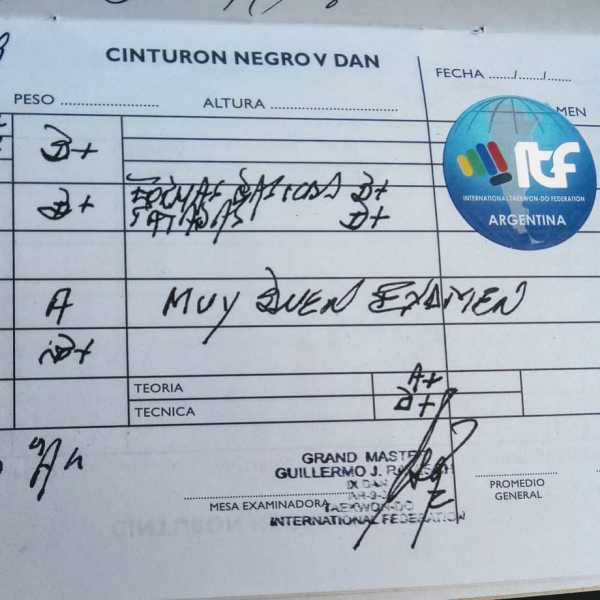 CINTURON NEGRO V DAN
FECHA ....../....../......
PESO ........................ ALTURA ..............................
MEN
B+
B+
B+
B+
itf
INTERNATIONAL TAEKWON-DO FEDERATION
ARGENTINA
A MUY BUEN EXAMEN
B+
TEORIA A+
TECNICA B+
"A"
GRAND MASTER
GUILLERMO J.
IX DAN
MESA EXAMINADORA TAEKWON-DO
INTERNATIONAL FEDERATION
PROMEDIO
GENERAL